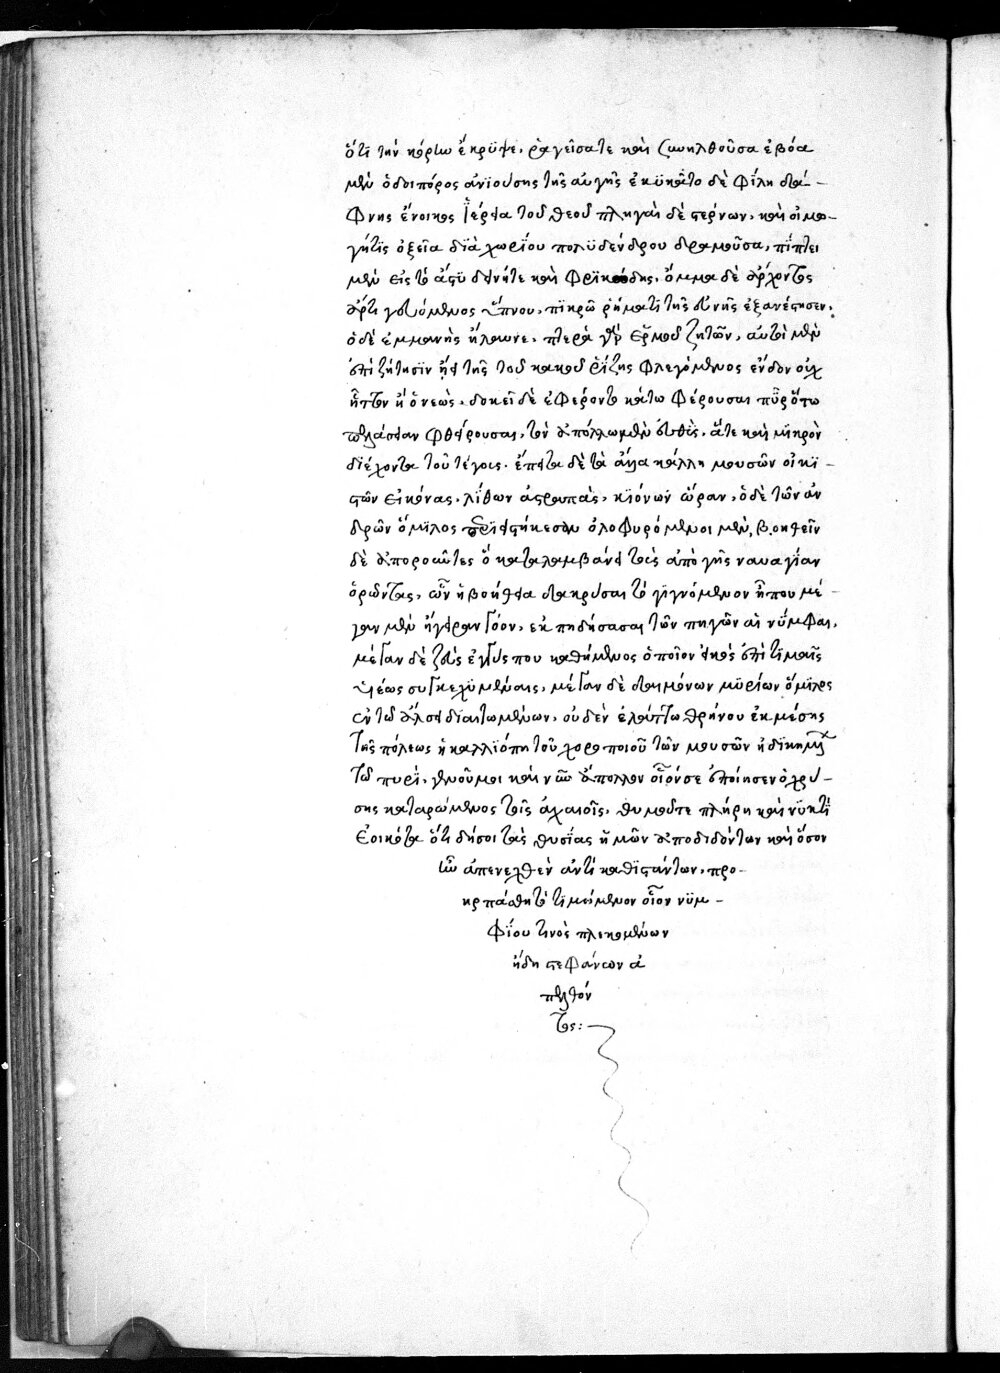 ὅτι τὴν κόρην ἔκρυψε. ῥαγεῖσά τε καὶ συνελθοῦσα ἐβόα
μὲν ὁδοιπόρος ἀνϊούσης τῆς αὐγῆς ἐκϋκᾶτο δὲ φίλη δά-
φνης ἔνοικος ϊέρεια τοῦ θεοῦ πληγαὶ δὲ στέρνων, καὶ οἰμω-
γή τις ὀξεῖα διὰ χωρΐου πολυδένδρου δραμοῦσα, πΐπτει
μὲν εἰς τὸ ἄστυ δεινή τε καὶ φρϊκώδης. ὄμμα δὲ ἄρχοντος
ἄρτι γευόμενος ὕπνου, πϊκρῶ ῥήματι τῆς εὐνῆς ἐξανέστησεν.
ὁ δὲ ἐμμανὴς ἤλαυνε, πτερὰ τὰ Ἑρμοῦ ζητῶν, αὐτοὶ μὲν
ἐπὶ ζήτησϊν ἤει τῆς τοῦ κακοῦ ῥίζης φλεγόμενος ἔνδον οὐχ
ἧττον ἢ ὁ νεώς. δοκεῖ δὲ ἐφέροντο κάτω φέρουσαι πῦρ ὅτω
πελάσειαν φθείρουσαι, τὸν ἀπόλλω μὲν εὐθὺς, ἅτε καὶ μϊκρὸν
διέχοντα τοῦ τέγους. ἔπειτα δὲ τὰ ἄλλα κάλλη μουσῶν οἰκϊ-
στῶν εἰκόνας, λίθων ἀστραπὰς, κιόνων ὥραν, ὁ δὲ τῶν ἀν
δρῶν ὅμϊλος περιεστήκεσαν ὀλοφυρόμενοι μὲν, βοηθεῖν
δὲ ἀποροῦντες ὃ καταλαμβάνει τοὺς ἀπὸ γῆς ναυαγίαν
ὁρῶντας, ὧν ἡ βοήθεια δακρῦσαι τὸ γϊγνόμενον ἦ που μέ-
γαν μὲν ἤγειραν γόον, ἐκπηδήσασαι τῶν πηγῶν αἱ νΰμφαι,
μέγαν δὲ ζεὺς ἐγγύς που καθήμενος ὁποῖον εἰκὸς ἐπὶ τιμαῖς
υἱέως συγκεχυμέναις, μέγαν δὲ δαιμόνων μϋρίων ὅμϊλος
ἐν τῶ ἄλσει διαιτωμένων, οὐδὲν ἐλάττω θρήνου ἐκ μέσης
τῆς πόλεως ἡ καλλϊόπη τοῦ χοροποιοῦ τῶν μουσῶν ἠδικημένου
τῶ πυρὶ, γενοῦ μοι καὶ νῦν ἄπολλον οἷόν σε ἐποίησεν ὁ χρύ-
σης καταρώμενος τοῖς ἀχαιοῖς, θυμοῦ τε πλήρη καὶ νϋκτὶ
ἐοικότα ὅτι δὴ σοι τὰς θυσΐας ἡμῶν ἀποδιδόντων καὶ ὅσον
ἦν ἀπενεχθὲν ἀντικαθϊστάντων, προ-
ηρπάσθη τὸ τιμώμενον οἷον νϋμ-
φΐου τινὸς πλεκομένων
ἤδη στεφάνων ἀ
πελθόν
τος: